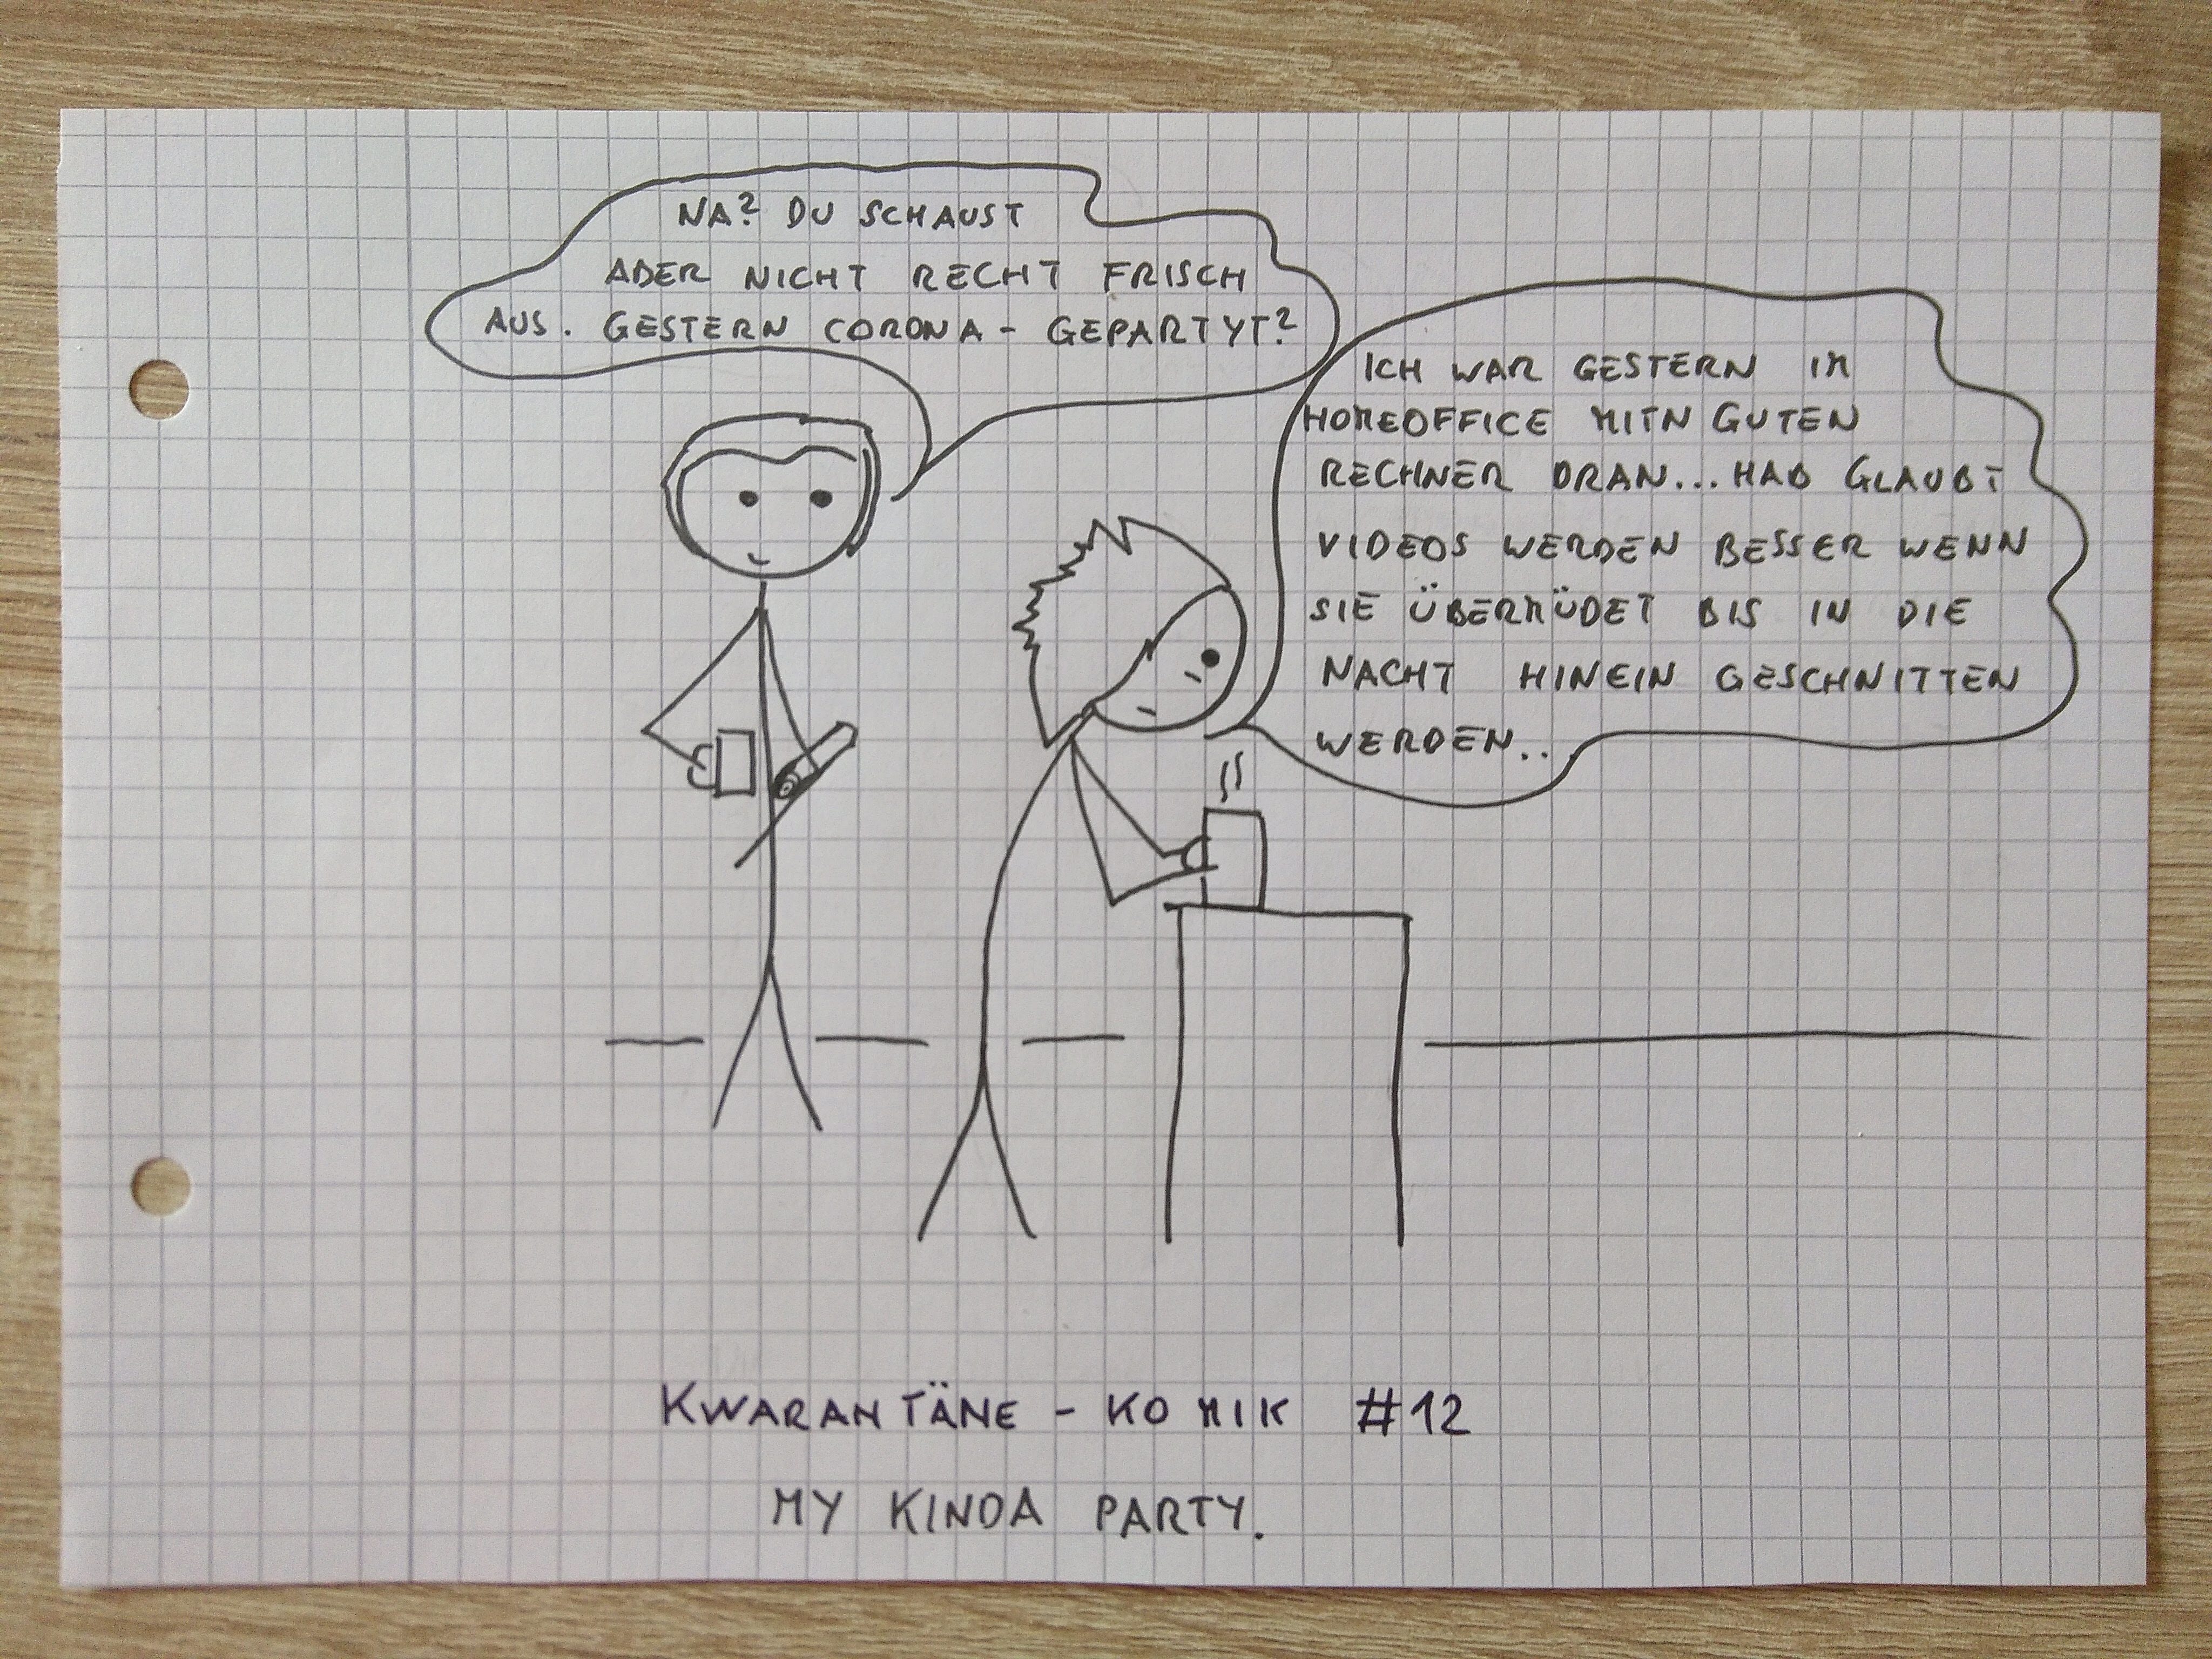 NA? DU SCHAUST
ABER NICHT RECHT FRISCH
AUS. GESTERN CORONA - GEPARTYT?
ICH WAR GESTERN IM
HOMEOFFICE MITN GUTEN
RECHNER DRAN... HAB GLAUBT
VIDEOS WERDEN BESSER WENN
SIE ÜBERMÜDET BIS IN DIE
NACHT HINEIN GESCHNITTEN
WERDEN..
KWARANTÄNE - KOMIK #12
MY KINDA PARTY.